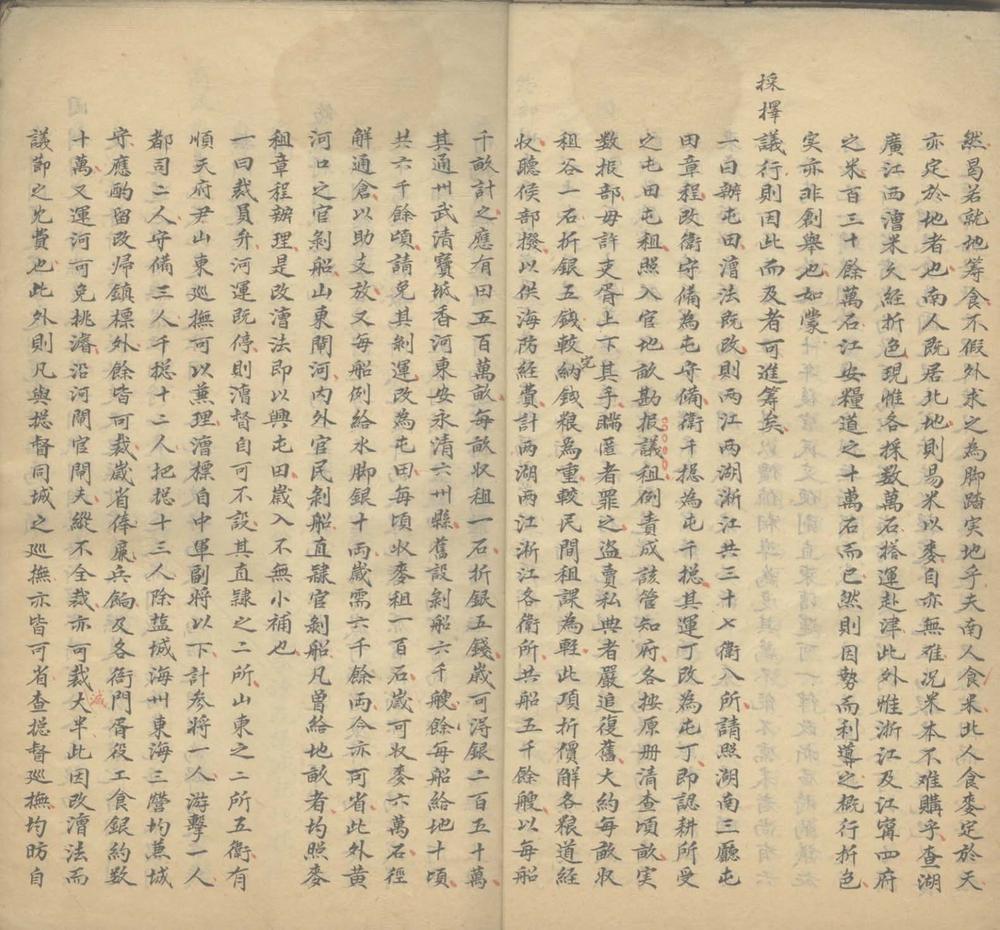 然曷若就地籌食不假外求之為脚踏实地乎夫南人食米北人食麥定於天
亦定於地者也南人既居北地則易米以麥自亦無难况米本不难購乎查湖
廣江西漕米久經折色現惟各採数萬石搭運赴津此外惟浙江及江甯四府
之米百三十餘萬石江安糧道之十萬石而已然則因勢而利導之概行折色
实亦非創舉也如蒙
採擇議行則因此而及者可進籌矣
一曰辦屯田漕法既改則两江两湖浙江共三十七衛八所請照湖南三廳屯
田章程改衛守備為屯守備衛千揔為屯千揔其運丁改為屯丁即認耕所受
之屯田屯租照入官地畝勘报議租例責成該管知府各按原册清查頃畝实
数报部毋許吏胥上下其手瞞匿者罪之盗賣私典者嚴追復舊大約每畝收
租谷一石折銀五錢較納錢粮完為重較民間租課為輕此項折價解各粮道経
收聽候部撥以供海防経費計两湖两江浙江各衛所共船五千餘艘以每船
千畝計之應有田五百萬畝每畝收租一石折銀五錢歲可得銀二百五十萬
其通州武清寶坻香河東安永清六州縣舊設剝船六千艘餘每船給地十頃
共六千餘頃請免其剝運改為屯田每頃收麥租一百石歲可收麥六萬石徑
解通倉以助支放又每船例給水脚銀十两歲需六千餘两今亦可省此外黄
河口之官剝船山東閘河内外官民剝船直隸官剝船凡曾給地畝者均照麥
租章程辦理是改漕法即以興屯田歲入不無小補也
一曰裁員弁河運既停則漕督自可不設其直隸之二所山東之二所五衛有
順天府尹山東巡撫可以兼理漕標自中軍副将以下計参将一人游擊一人
都司二人守備三人千揔十二人把揔十三人除盐城海州東海三營均兼城
守應酌留改帰鎮標外餘皆可裁歲省俸廉兵餉及各衙門胥役工食銀約数
十萬又運河可免挑濬沿河閘官閘夫縱不全裁亦可裁减大半此因改漕法而
議節之冗費也此外則凡與揔督同城之巡撫亦皆可省查揔督巡撫均昉自